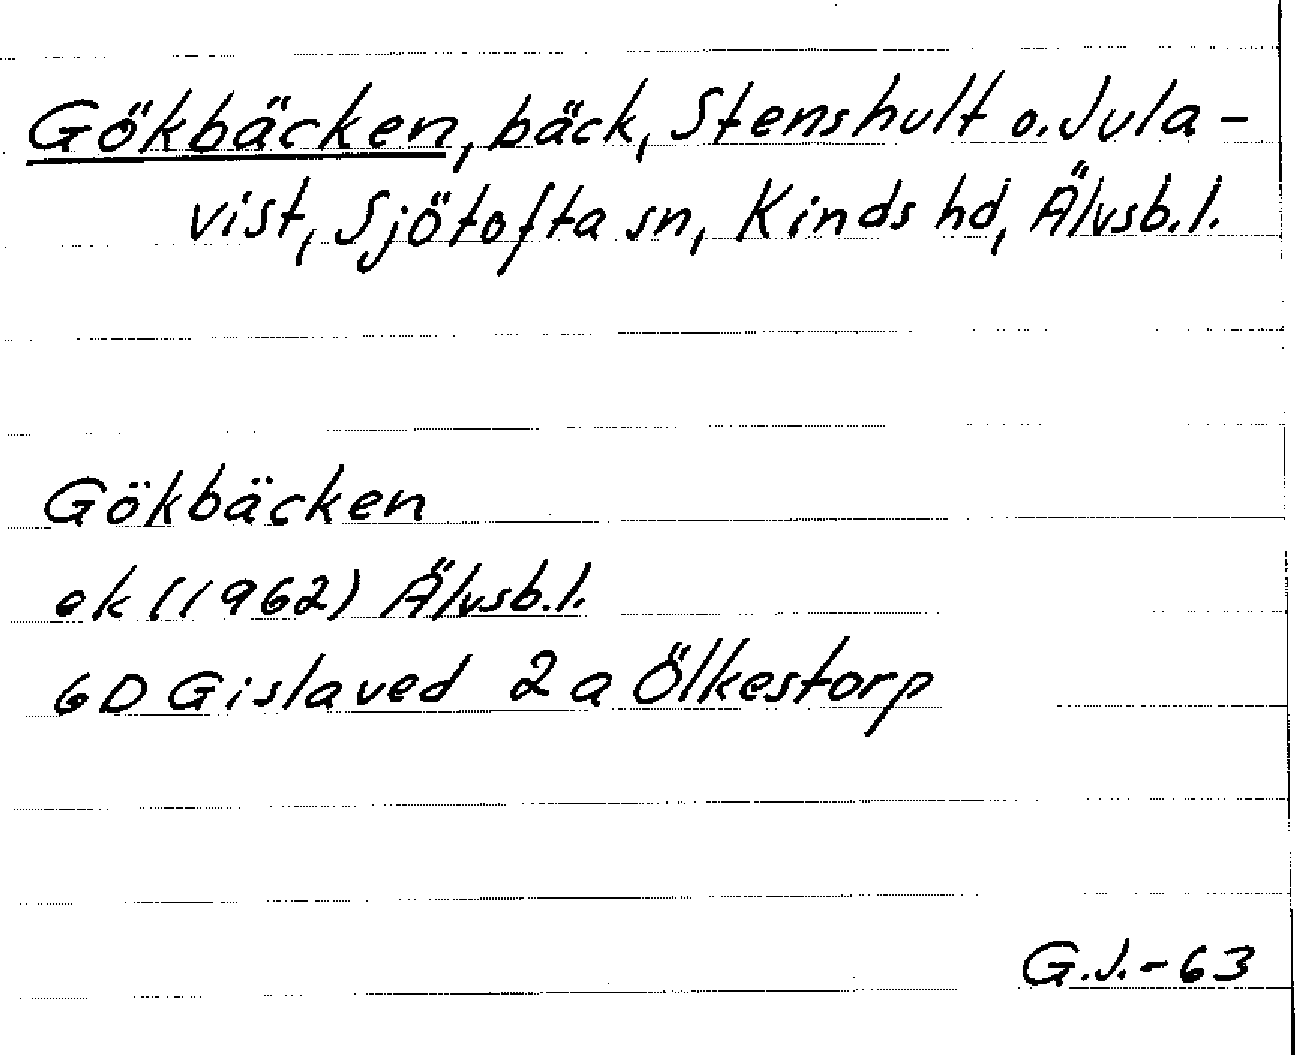 Gökbäcken, bäck, Stenshult o. Jula-
vist, Sjötofta sn, Kinds hd, Älvsb.l.
Gökbäcken
ek (1962) Älvsb.l.
6D Gislaved 2a Ölkestorp
G.J.-63